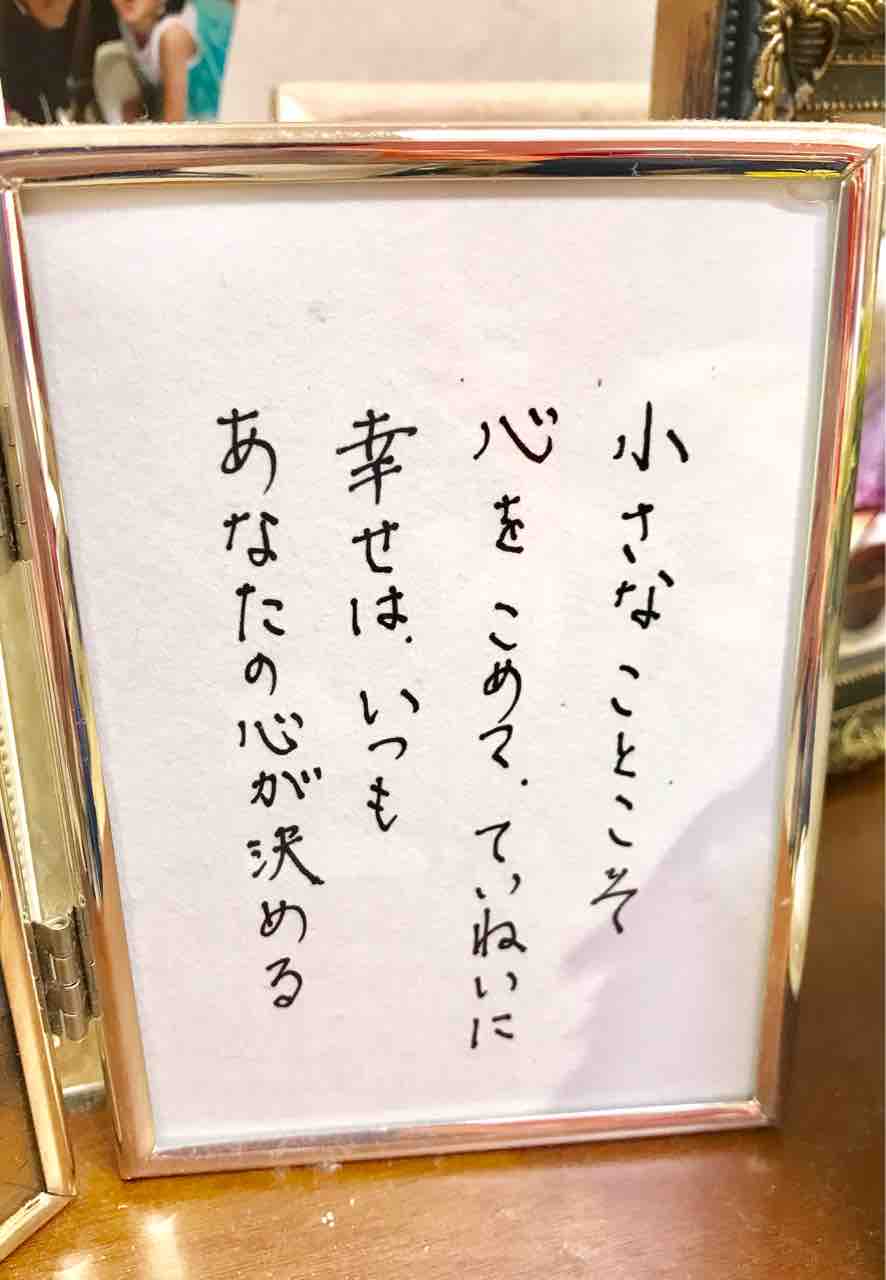 小さなことこそ
心をこめて、ていねいに
幸せは、いつも
あなたの心が決める